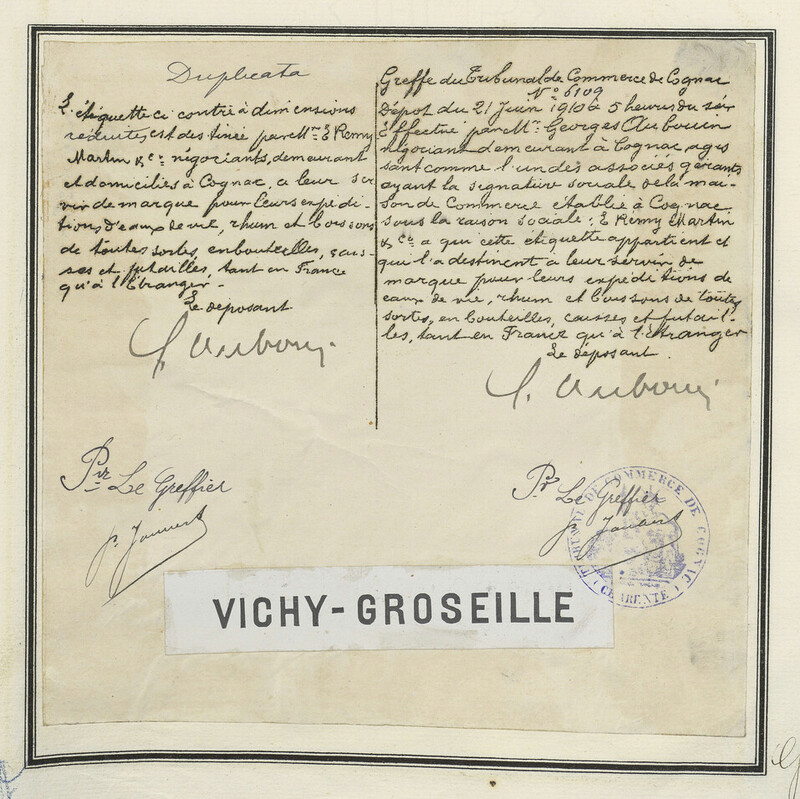 Duplicata
L'étiquette ci contre à dimensions
réduites est destinée par Mrs E Remy
Martin & Cie négociants, demeurant
et domiciliés à Cognac, a leur ser
vir de marque pour leurs expédi-
tions d'eaux de vie, rhum et boissons
de toutes sortes, en bouteilles, cais-
ses et futailles, tant en France
qu'à l'Étranger.
Le déposant
G. Aubouin
Pr Le Greffier
Greffe du Tribunal de Commerce de Cognac
No 6109
Dépot du 21 Juin 1910 à 5 heures du soir
Effectué par Mr Georges Aubouin
négociant demeurant à Cognac, agis
sant comme l'un des associés gérants
ayant la signature sociale de la mai-
son de Commerce établie à Cognac
sous la raison sociale: E Rémy Martin
& Cie a qui cette étiquette appartient et
qui l'a destinent à leur servir de
marque pour leurs expéditions de
eaux de vie, rhum et boissons de toutes
sortes, en bouteilles, caisses et futail-
les, tant en France qu'à l'étranger
Le déposant.
G. Aubouin
Pr Le Greffier
TRIBUNAL DE COMMERCE DE COGNAC
CHARENTE
VICHY-GROSEILLE